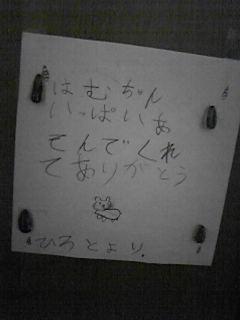 はむぢん
いっぱいあ
そんでくれ
てありがとう
ひろとより.